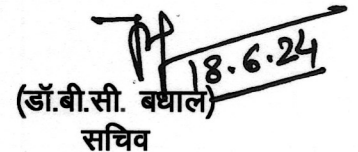 18.6.24
(डॉ.बी.सी. बधाल)
सचिव